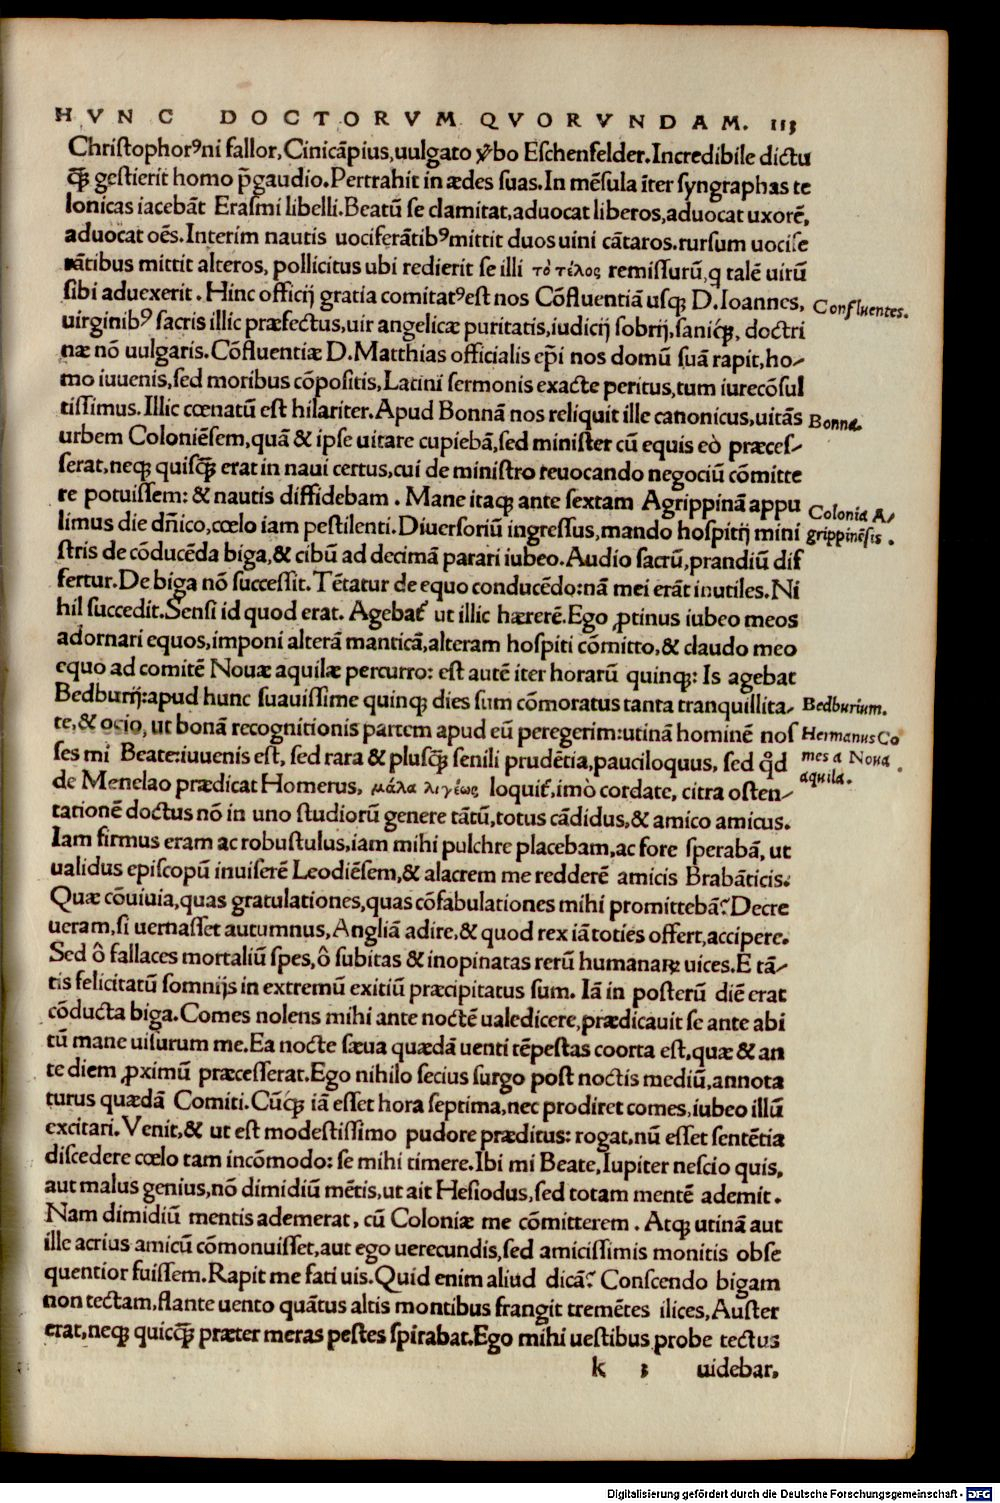 HVNC DOCTORVM QVORVNDAM. 113
Christophorꝰ ni fallor, Cinicāpius, uulgato ꝟbo Eschenfelder. Incredibile dictu
ꝗ̃ꝫ gestierit homo p̄ gaudio. Pertrahit in ædes suas. In mēsula īter syngraphas te
lonicas iacebāt Erasmi libelli. Beatū se clamitat, aduocat liberos, aduocat uxorē,
aduocat oēs. Interim nautis uociferātibꝰ mittit duos uini cātaros. rursum uocife
rātibus mittit alteros, pollicitus ubi redierit se illi τὸ τέλος remissurū, q talē uirū
sibi aduexerit. Hinc officij gratia comitatꝰ est nos Cōfluentiā usqꝫ D. Ioannes,
Confluentes.
uirginibꝰ sacris illic præfectus, uir angelicæ puritatis, iudicij sobrij, saniq́ꝫ, doctri
næ nō uulgaris. Cōfluentiæ D. Matthias officialis ep̄i nos domū suā rapit, ho-
mo iuuenis, sed moribus cōpositis, Latini sermonis exacte peritus, tum iurecōsul
tissimus. Illic cœnatū est hilariter. Apud Bonnā nos reliquit ille canonicus, uitās
Bonna.
urbem Coloniēsem, quā & ipse uitare cupiebā, sed minister cū equis eò præces-
serat, neqꝫ quisꝗ̃ꝫ erat in naui certus, cui de ministro reuocando negociū cōmitte
re potuissem: & nautis diffidebam. Mane itaqꝫ ante sextam Agrippinā appu
Colonia A-
limus die dñico, cœlo iam pestilenti. Diuersoriū ingressus, mando hospitij mini
grippinēsis.
stris de cōducēda biga, & cibū ad decimā parari iubeo. Audio sacrū, prandiū dif
fertur. De biga nō successit. Tētatur de equo conducēdo: nā mei erāt inutiles. Ni
hil succedit. Sensi id quod erat. Agebat᷑ ut illic hærerē. Ego ꝓtinus iubeo meos
adornari equos, imponi alterā manticā, alteram hospiti cōmitto, & claudo meo
equo ad comitē Nouæ aquilæ percurro: est autē iter horarū quinqꝫ: Is agebat
Bedburij: apud hunc suauissime quinqꝫ dies sum cōmoratus tanta tranquillita-
Bedburium.
te, & ocio, ut bonā recognitionis partem apud eū peregerim: utinā hominē nos
Hermanus Co
ses mi Beate: iuuenis est, sed rara & plusꝗ̃ꝫ senili prudētia, pauciloquus, sed qd̄
mes a Noua
de Menelao prædicat Homerus, μάλα λιγέως loquit᷑, imò cordate, citra osten-
aquila.
tationē doctus nō in uno studiorū genere tātū, totus cādidus, & amico amicus.
Iam firmus eram ac robustulus, iam mihi pulchre placebam, ac fore sperabā, ut
ualidus episcopū inuiserē Leodiēsem, & alacrem me redderē amicis Brabāticis.
Quæ cōuiuia, quas gratulationes, quas cōfabulationes mihi promittebā? Decre
ueram, si uernasset autumnus, Angliā adire, & quod rex iā toties offert, accipere.
Sed ô fallaces mortaliū spes, ô subitas & inopinatas rerū humanaꝝ uices. E tā-
tis felicitatū somnijs in extremū exitiū præcipitatus sum. Iā in posterū diē erat
cōducta biga. Comes nolens mihi ante noctē ualedicere, prædicauit se ante abi
tū mane uisurum me. Ea nocte sæua quædā uenti tēpestas coorta est, quæ & an
te diem ꝓximū præcesserat. Ego nihilo secius surgo post noctis mediū, annota
turus quædā Comiti. Cūq́ꝫ iā esset hora septima, nec prodiret comes, iubeo illū
excitari. Venit, & ut est modestissimo pudore præditus: rogat, nū esset sentētia
discedere cœlo tam incōmodo: se mihi timere. Ibi mi Beate, Iupiter nescio quis,
aut malus genius, nō dimidiū mētis, ut ait Hesiodus, sed totam mentē ademit.
Nam dimidiū mentis ademerat, cū Coloniæ me cōmitterem. Atqꝫ utinā aut
ille acrius amicū cōmonuisset, aut ego uerecundis, sed amicissimis monitis obse
quentior fuissem. Rapit me fati uis. Quid enim aliud dicā? Conscendo bigam
non tectam, flante uento quātus altis montibus frangit tremētes ilices, Auster
erat, neqꝫ quicꝗ̃ꝫ præter meras pestes spirabat. Ego mihi uestibus probe tectus
k 3 uidebar,
Digitalisierung gefördert durch die Deutsche Forschungsgemeinschaft - DFG